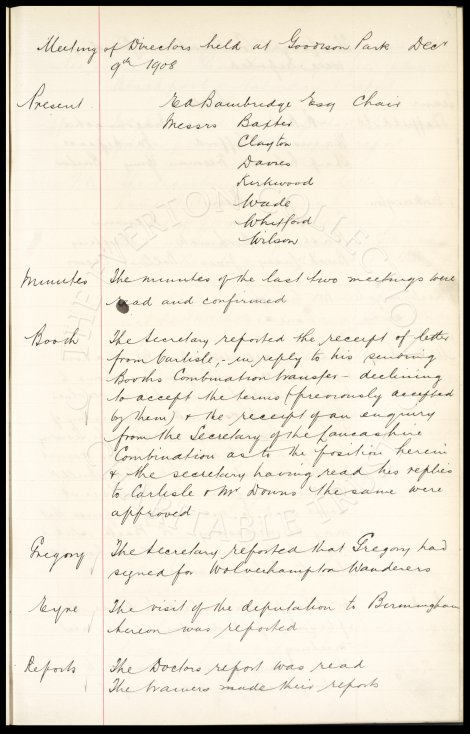 Meeting of Directors held at Goodison Park Decr
9th 1908
Present E A Bainbridge Esq Chair
Messrs Baxter
Clayton
Davies
Kirkwood
Wade
Whitford
Wilson
Minutes The minutes of the last two meetings were
read and confirmed
Booth The Secretary reported the receipt of letter
from Carlisle, - in reply to his sending
Booths Combination transfer - declining
to accept the terms (previously accepted
by them) & the receipt of an enquiry
from the Secretary of the Lancashire
Combination as to the position herein
& the secretary having read his replies
to Carlisle & Mr Downs the same were
approved
Gregory The Secretary reported that Gregory had
signed for Wolverhampton Wanderers
Eyre The visit of the deputation to Birmingham
hereon was reported
Reports The Doctors report was read
The trainers made their reports
THE EVERTON COLLECTION
CHARITABLE TRUST